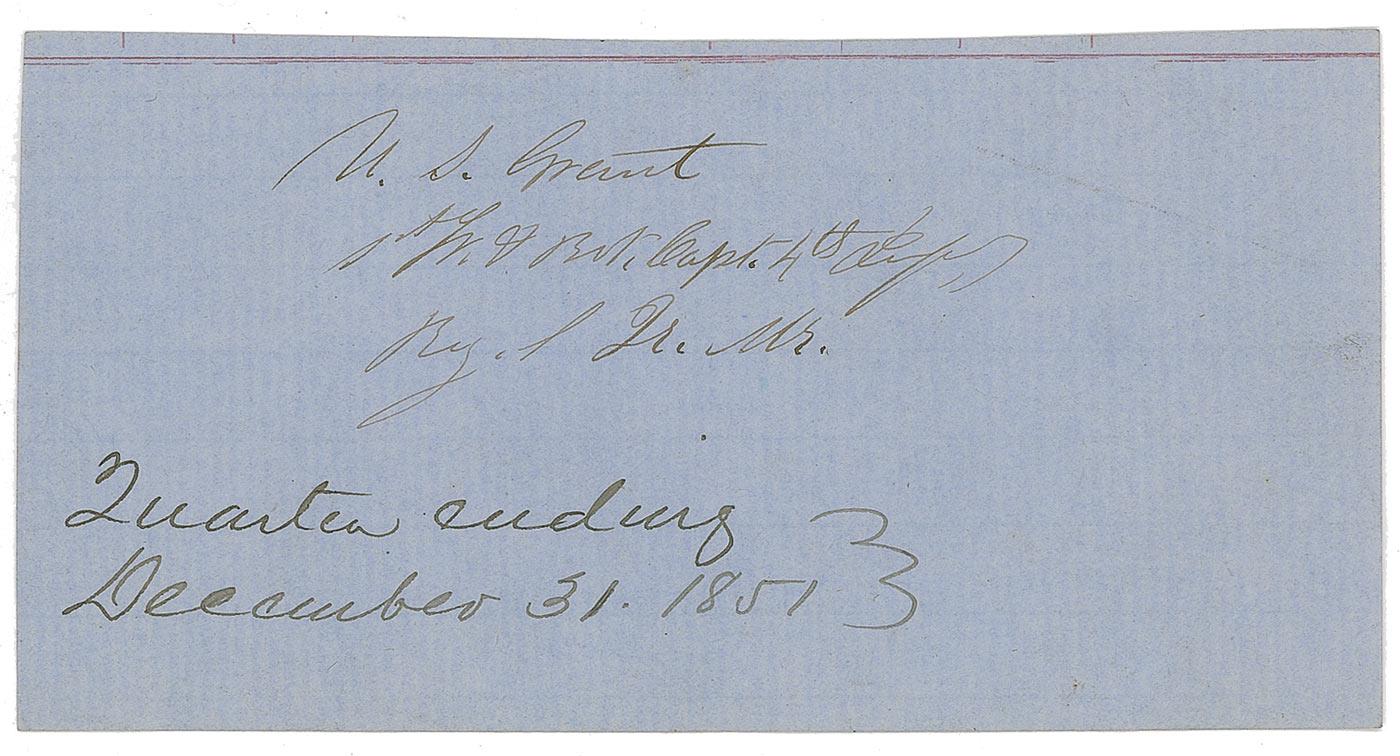 U. S. Grant
1st Lt. & Bvt. Capt. 4th Inf.
Reg.l Qr. Mr.
Quarter ending
December 31. 1851